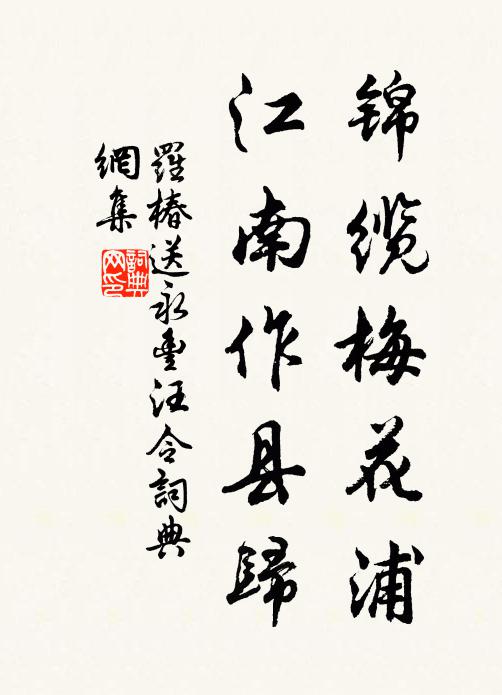 锦缆梅花浦
江南作县歸
羅椿送永豊汪令詞典
網集
詞典
网印